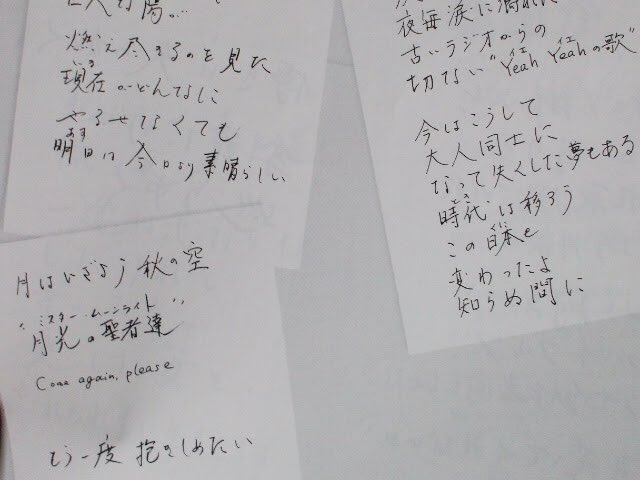 陽…
燃え尽きるのを見た
いま
現在がどんなに
やるせなくても
あす
明日は今日より素晴らしい
月はいざよう秋の空
ミスター・ムーンライト
“月光の聖者達”
Come again, please
もう一度抱きしめたい
夜毎涙に濡れた
古いラジオからの
イェ イェ
切ない“Yeah Yeahの歌”
今はこうして
大人同士に
なって失くした夢もある
とき
時代は移ろう
くに
この日本も
変わったよ
知らぬ間に